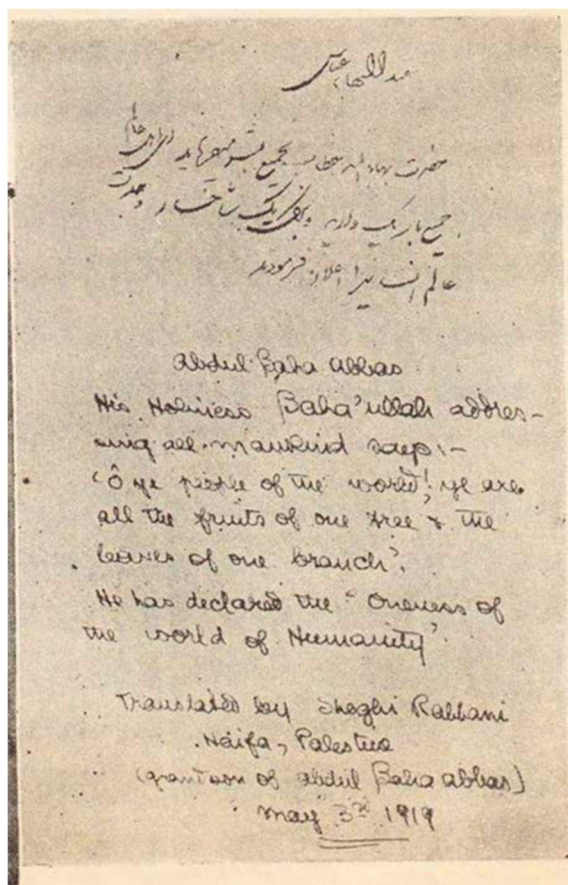 عبدالبهاء عباس
حضرت بهاءالله خطاب بجمیع بشر میفرماید ای اهل عالم
جمیع بار یک دارید و برگ یک شاخسار وحدت
عالم انسانیرا اعلان فرمودند
Abdul Baha Abbas
His Holiness Baha'ullah addres-
sing all mankind says:-
'O ye people of the world! ye are
all the fruits of one tree & the
leaves of one branch'.
He has declared the "Oneness of
the world of Humanity"
Translated by Shoghi Rabbani
Haifa, Palestine
(grandson of abdul Baha abbas)
May 3rd 1919